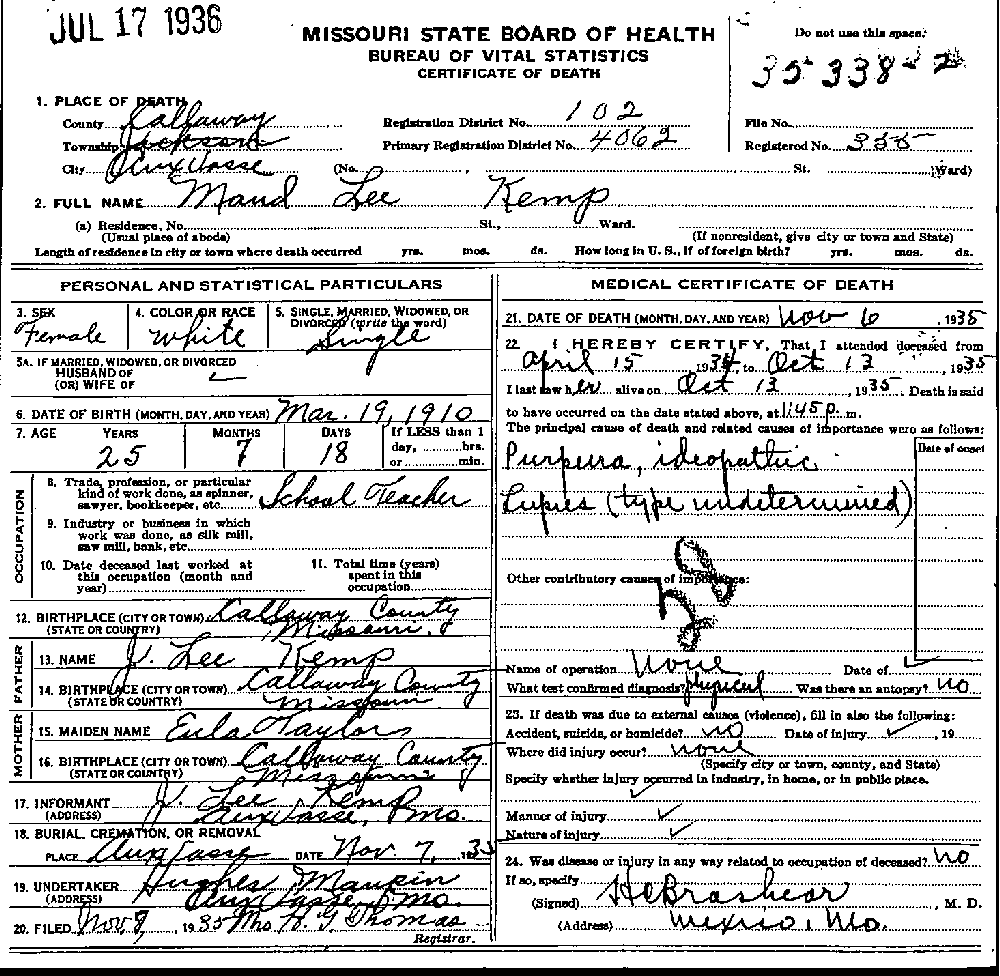 JUL 17 1936
MISSOURI STATE BOARD OF HEALTH
BUREAU OF VITAL STATISTICS
CERTIFICATE OF DEATH
Do not use this space.
35338
1. PLACE OF DEATH
County Callaway Registration District No. 102 File No.
Township Jackson Primary Registration District No. 4062 Registered No. 355
City Auxvasse (No. , St. Ward)
2. FULL NAME Maud Lee Kemp
(a) Residence, No. St., Ward.
(Usual place of abode) (If nonresident, give city or town and State)
Length of residence in city or town where death occurred yrs. mos. ds. How long in U. S., if of foreign birth? yrs. mos. ds.
PERSONAL AND STATISTICAL PARTICULARS
3. SEX 4. COLOR OR RACE 5. SINGLE, MARRIED, WIDOWED, OR DIVORCED (write the word)
Female White Single
5A. IF MARRIED, WIDOWED, OR DIVORCED
HUSBAND OF
(OR) WIFE OF
6. DATE OF BIRTH (MONTH, DAY, AND YEAR) Mar. 19, 1910
7. AGE YEARS MONTHS DAYS If LESS than 1
25 7 18 day, hrs.
or min.
OCCUPATION
8. Trade, profession, or particular
kind of work done, as spinner,
sawyer, bookkeeper, etc. School Teacher
9. Industry or business in which
work was done, as silk mill,
saw mill, bank, etc.
10. Date deceased last worked at
this occupation (month and
year)
11. Total time (years)
spent in this
occupation
12. BIRTHPLACE (CITY OR TOWN) Callaway County
(STATE OR COUNTRY) Missouri
FATHER
13. NAME J. Lee Kemp
14. BIRTHPLACE (CITY OR TOWN) Callaway County
(STATE OR COUNTRY) Missouri
MOTHER
15. MAIDEN NAME Eula Taylor
16. BIRTHPLACE (CITY OR TOWN) Callaway County
(STATE OR COUNTRY) Missouri
17. INFORMANT J. Lee Kemp
(ADDRESS) Auxvasse, Mo.
18. BURIAL, CREMATION, OR REMOVAL
PLACE Auxvasse DATE Nov. 7, 1935
19. UNDERTAKER Hughes Maupin
(ADDRESS) Auxvasse, Mo.
20. FILED Nov 8, 1935 Mrs. H. G. Thomas
Registrar.
MEDICAL CERTIFICATE OF DEATH
21. DATE OF DEATH (MONTH, DAY, AND YEAR) Nov 6, 1935
22. I HEREBY CERTIFY, That I attended deceased from
April 15 1934, to Oct 13, 1935
I last saw her alive on Oct 13, 1935. Death is said
to have occurred on the date stated above, at 1:45 p. m.
The principal cause of death and related causes of importance were as follows:
Date of onset
Purpura, ideopathic
Lupies (type undetermined)
Other contributory causes of importance:
Name of operation None Date of
What test confirmed diagnosis? physical Was there an autopsy? no
23. If death was due to external causes (violence), fill in also the following:
Accident, suicide, or homicide? no Date of injury , 19
Where did injury occur? none
(Specify city or town, county, and State)
Specify whether injury occurred in industry, in home, or in public place.
Manner of injury
Nature of injury
24. Was disease or injury in any way related to occupation of deceased? no
If so, specify
(Signed) H C Brashear, M. D.
(Address) Mexico, Mo.